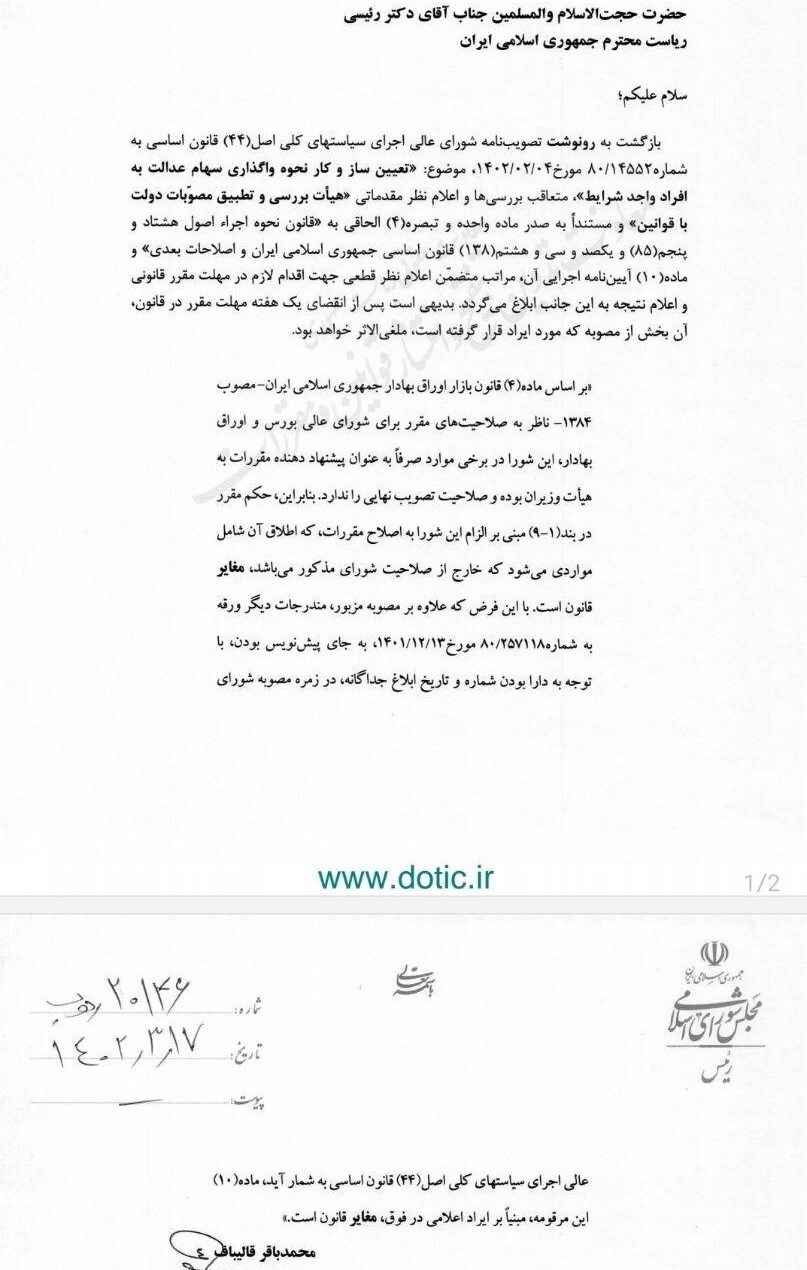 حضرت حجت‌الاسلام والمسلمین جناب آقای دکتر رئیسی
ریاست محترم جمهوری اسلامی ایران
سلام علیکم؛
بازگشت به رونوشت تصویب‌نامه شورای عالی اجرای سیاستهای کلی اصل(۴۴) قانون اساسی به
شماره۸۰/۱۴۵۵۲ مورخ۱۴۰۲/۰۲/۰۴، موضوع: «تعیین ساز و کار نحوه واگذاری سهام عدالت به
افراد واجد شرایط»، متعاقب بررسی‌ها و اعلام نظر مقدماتی «هیأت بررسی و تطبیق مصوّبات دولت
با قوانین» و مستنداً به صدر ماده واحده و تبصره(۴) الحاقی به «قانون نحوه اجراء اصول هشتاد و
پنجم(۸۵) و یکصد و سی و هشتم(۱۳۸) قانون اساسی جمهوری اسلامی ایران و اصلاحات بعدی» و
ماده(۱۰) آیین‌نامه اجرایی آن، مراتب متضمّن اعلام نظر قطعی جهت اقدام لازم در مهلت مقرر قانونی
و اعلام نتیجه به این جانب ابلاغ می‌گردد. بدیهی است پس از انقضای یک هفته مهلت مقرر در قانون،
آن بخش از مصوبه که مورد ایراد قرار گرفته است، ملغی‌الاثر خواهد بود.
«بر اساس ماده(۴) قانون بازار اوراق بهادار جمهوری اسلامی ایران-مصوب
۱۳۸۴- ناظر به صلاحیت‌های مقرر برای شورای عالی بورس و اوراق
بهادار، این شورا در برخی موارد صرفاً به عنوان پیشنهاد دهنده مقررات به
هیأت وزیران بوده و صلاحیت تصویب نهایی را ندارد. بنابراین، حکم مقرر
در بند(۱-۹) مبنی بر الزام این شورا به اصلاح مقررات، که اطلاق آن شامل
مواردی می‌شود که خارج از صلاحیت شورای مذکور می‌باشد، مغایر
قانون است. با این فرض که علاوه بر مصوبه مزبور، مندرجات دیگر ورقه
به شماره۸۰/۲۵۷۱۱۸ مورخ۱۴۰۱/۱۲/۱۳، به جای پیش‌نویس بودن، با
توجه به دارا بودن شماره و تاریخ ابلاغ جداگانه، در زمره مصوبه شورای
www.dotic.ir
1/2
جمهوری اسلامی ایران
مجلس شورای اسلامی
رئیس
باسمه تعالی
شماره: ۲۰۱۳۶
تاریخ: ۱۴۰۲/۳/۱۷
پیوست: —
عالی اجرای سیاستهای کلی اصل(۴۴) قانون اساسی به شمار آید، ماده(۱۰)
این مرقومه، مبنیاً بر ایراد اعلامی در فوق، مغایر قانون است.»
محمدباقر قالیباف